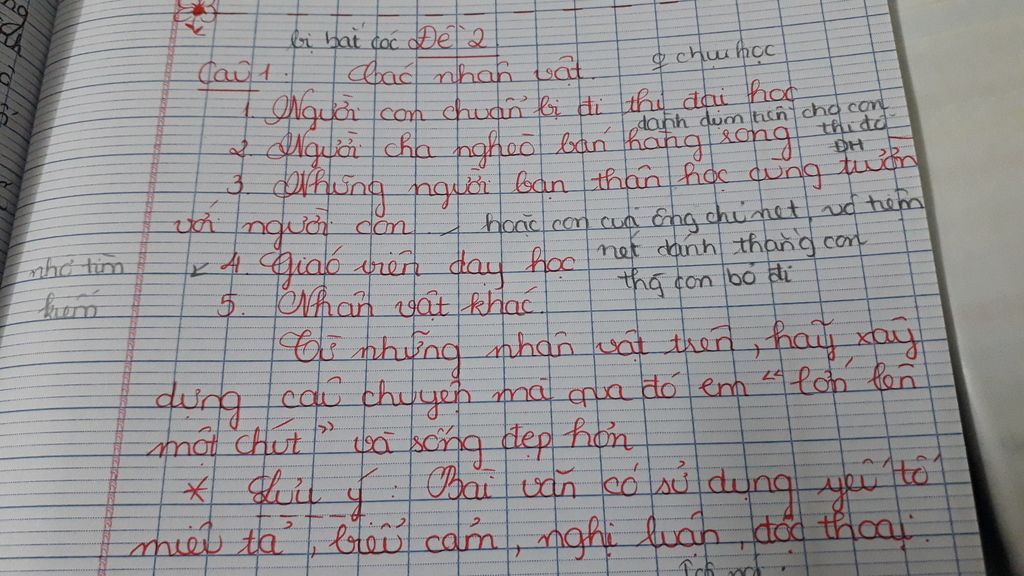 bị bài đọc Đề 2
Câu 1. Các nhân vật.
1. Người con chuẩn bị đi thi đại học
dành dụm tiền cho con
thi đỗ
ĐH
2. Người cha nghèo bán hàng rong
3. Những người bạn thân học cùng trường
với người con
hoặc con của ông chủ net, vợ tiệm
net đánh thằng con
thg con bỏ đi
nhớ tìm
kiếm
4. Giáo viên dạy học
5. Nhân vật khác.
Từ những nhân vật trên, hãy xây
dựng câu chuyện mà qua đó em "lớn lên
một chút" và sống đẹp hơn
* Lưu ý: Bài văn có sử dụng yếu tố
miêu tả, biểu cảm, nghị luận, độc thoại.